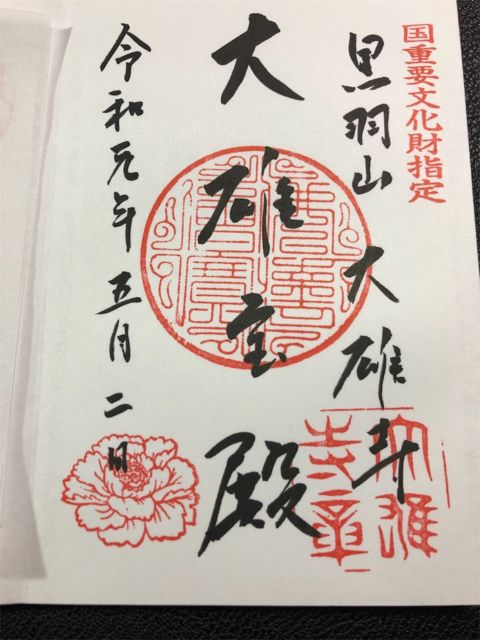 国重要文化財指定
黒羽山 大雄寺
大雄宝殿
令和元年 五月 二日